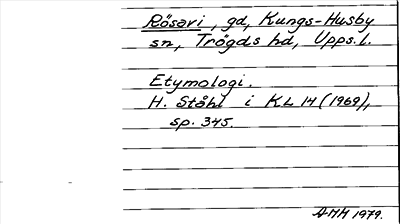 Rösavi, gd, Kungs-Husby
sn, Trögds hd, Upps. l.
Etymologi.
H. Ståhl i KL 14 (1969),
sp. 345.
AMH 1979.